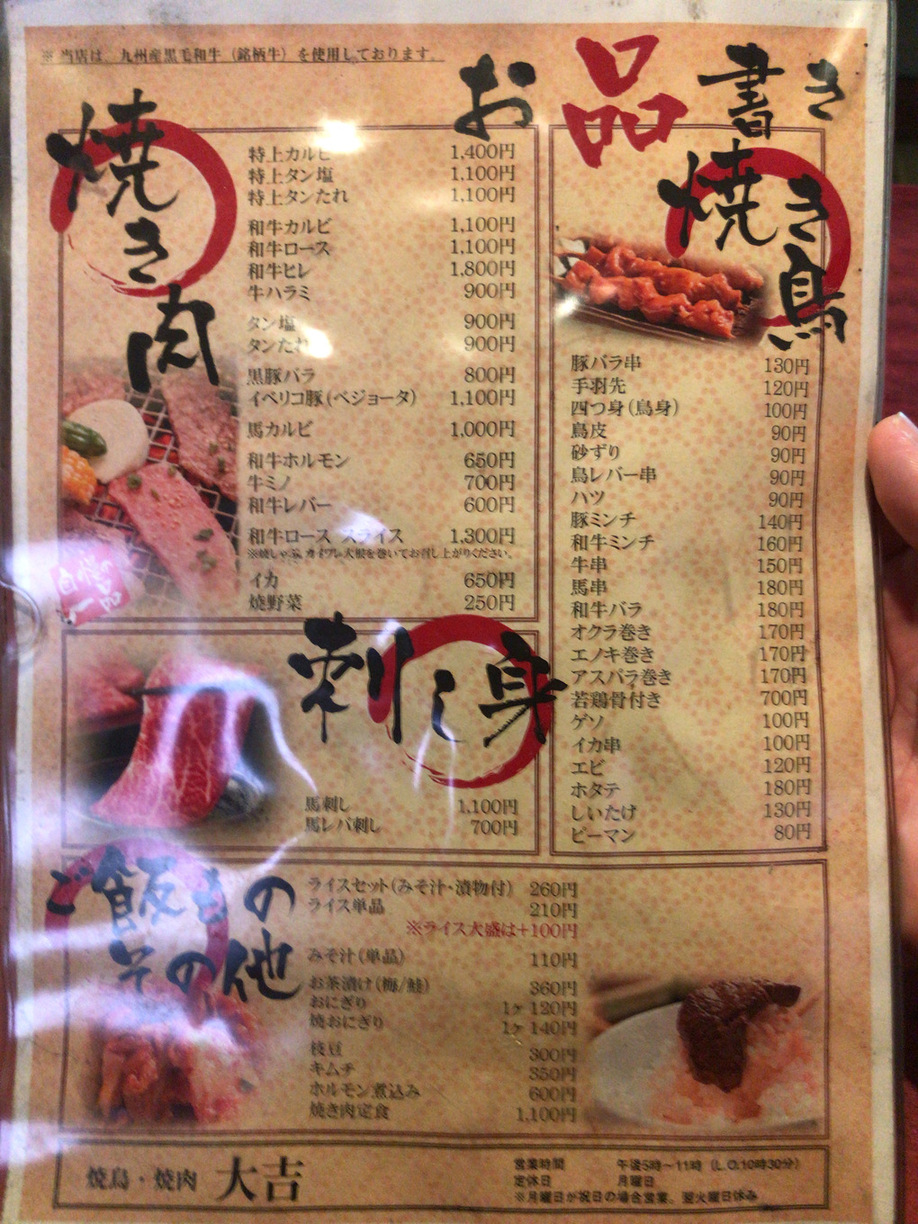 ※ 当店は、九州産黒毛和牛（銘柄牛）を使用しております。
お品書き
焼き肉
特上カルビ 1,400円
特上タン塩 1,100円
特上タンたれ 1,100円
和牛カルビ 1,100円
和牛ロース 1,100円
和牛ヒレ 1,800円
牛ハラミ 900円
タン塩 900円
タンたれ 900円
黒豚バラ 800円
イベリコ豚(ベジョータ) 1,100円
馬カルビ 1,000円
和牛ホルモン 650円
牛ミノ 700円
和牛レバー 600円
和牛ロース スライス 1,300円
※焼しゃぶ カイワレ大根を巻いてお召し上がりください。
イカ 650円
焼野菜 250円
自慢の一品
焼き鳥
豚バラ串 130円
手羽先 120円
四つ身(鳥身) 100円
鳥皮 90円
砂ずり 90円
鳥レバー串 90円
ハツ 90円
豚ミンチ 140円
和牛ミンチ 160円
牛串 150円
馬串 180円
和牛バラ 180円
オクラ巻き 170円
エノキ巻き 170円
アスパラ巻き 170円
若鶏骨付き 700円
ゲソ 100円
イカ串 100円
エビ 120円
ホタテ 180円
しいたけ 130円
ピーマン 80円
刺し身
馬刺し 1,100円
馬レバ刺し 700円
ご飯もの
その他
ライスセット(みそ汁・漬物付) 260円
ライス単品 210円
※ライス大盛は+100円
みそ汁(単品) 110円
お茶漬け(梅/鮭) 360円
おにぎり 1ヶ 120円
焼おにぎり 1ヶ 140円
枝豆 300円
キムチ 350円
ホルモン煮込み 600円
焼き肉定食 1,100円
焼鳥・焼肉 大吉
営業時間 午後5時〜11時（L.O.10時30分）
定休日 月曜日
※月曜日が祝日の場合営業、翌火曜日休み